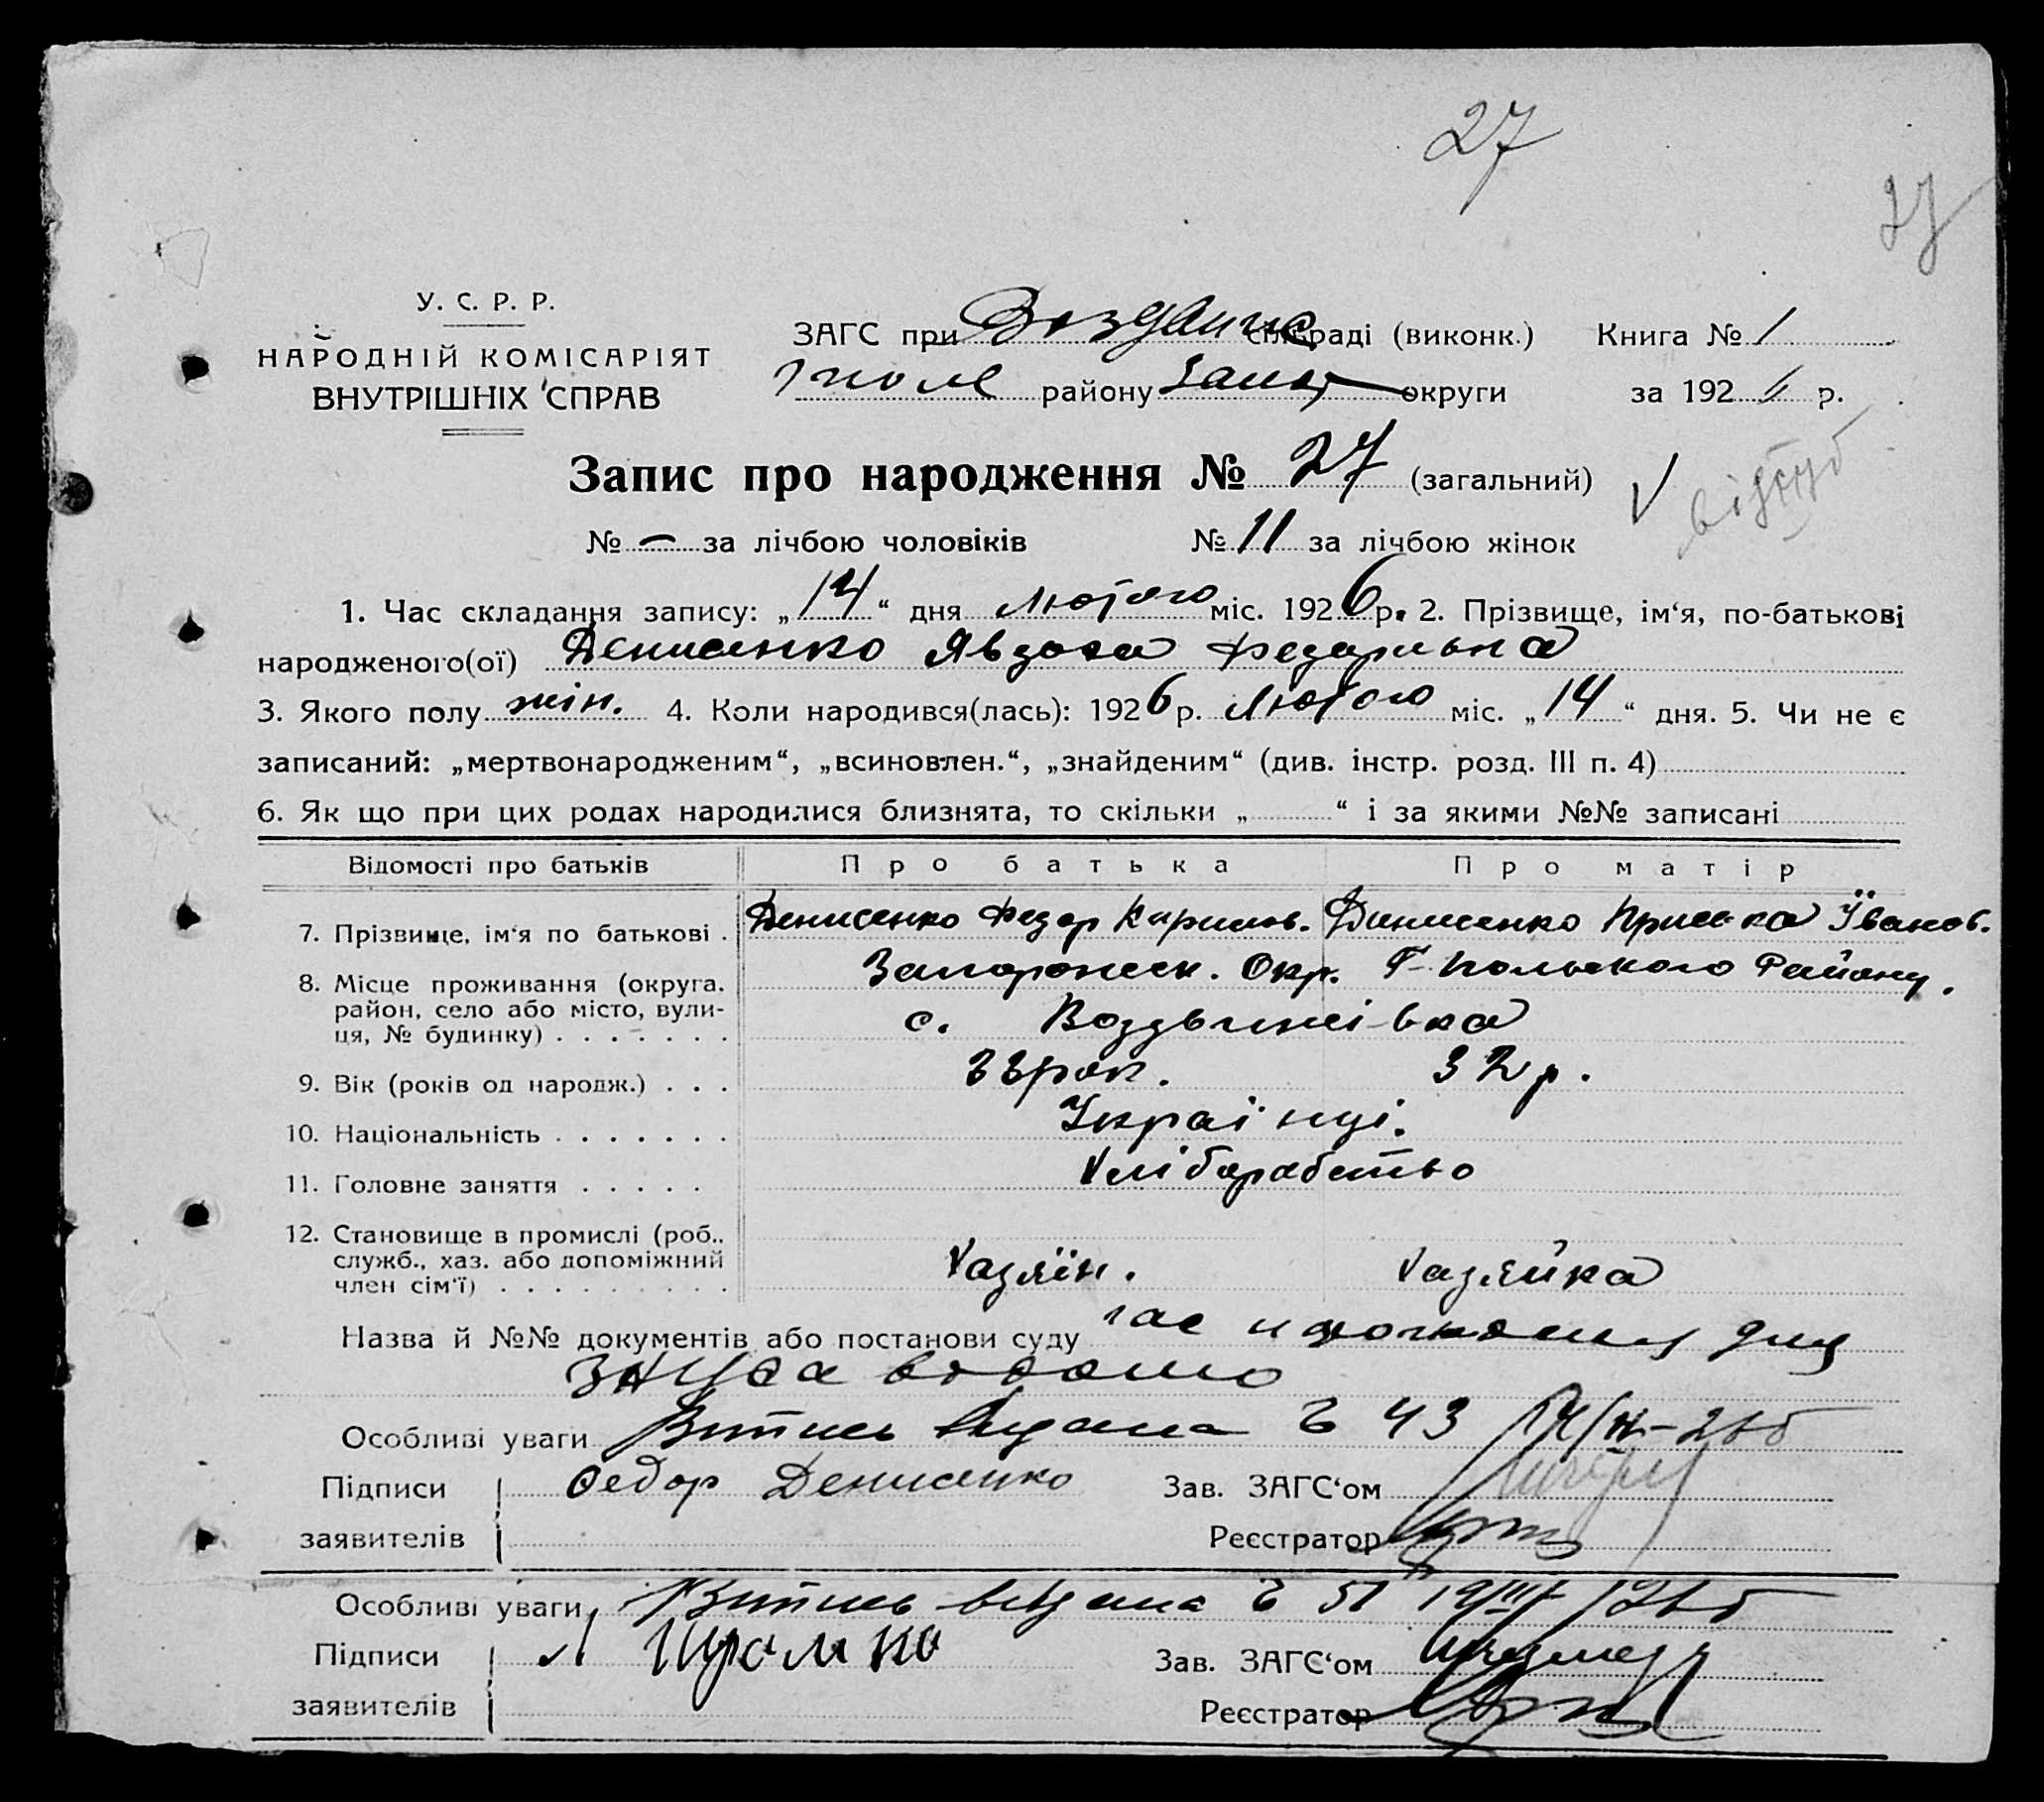 27
27
У. С. Р. Р.
НАРОДНІЙ КОМІСАРІЯТ
ВНУТРІШНІХ СПРАВ
ЗАГС при Воздвиж сільраді (виконк.) Книга № 1
Гполе району Запор округи за 1926 р.
Запис про народження № 27 (загальний)
№ – за лічбою чоловіків № 11 за лічбою жінок
1. Час складання запису: „14“ дня Лютого міс. 1926 р. 2. Прізвище, ім‘я, по-батькові
народженого(ої) Денисенко Явдоха Федорівна
3. Якого полу жін. 4. Коли народився(лась): 1926 р. Лютого міс. „14“ дня. 5. Чи не є
записаний: „мертвонародженим“, „всиновлен.“, „знайденим“ (див. інстр. розд. III п. 4)
6. Як що при цих родах народилися близнята, то скільки „ “ і за якими №№ записані
Відомості про батьків Про батька Про матір
7. Прізвище, ім‘я по батькові . Денисенко Федор Кирилов. Денисенко Приська Іванов.
8. Місце проживання (округа, Запорожськ. Окр. Г-Польского Району.
район, село або місто, вули-
ця, № будинку) . . . . . . . с. Воздвижівка
9. Вік (років од народж.) . . . рок. 32 р.
10. Національність . . . . . . . Українці.
11. Головне заняття . . . . . Хліборобство
12. Становище в промислі (роб.,
служб., хаз. або допоміжний
член сім‘ї) . . . . . . . . . Хазяїн. Хазяйка
Назва й №№ документів або постанови суду
Особливі уваги Витись видана 43
Підписи Федор Денисенко Зав. ЗАГС‘ом
заявителів Реєстратор
Особливі уваги Витись видана 51
Підписи Зав. ЗАГС‘ом
заявителів Реєстратор